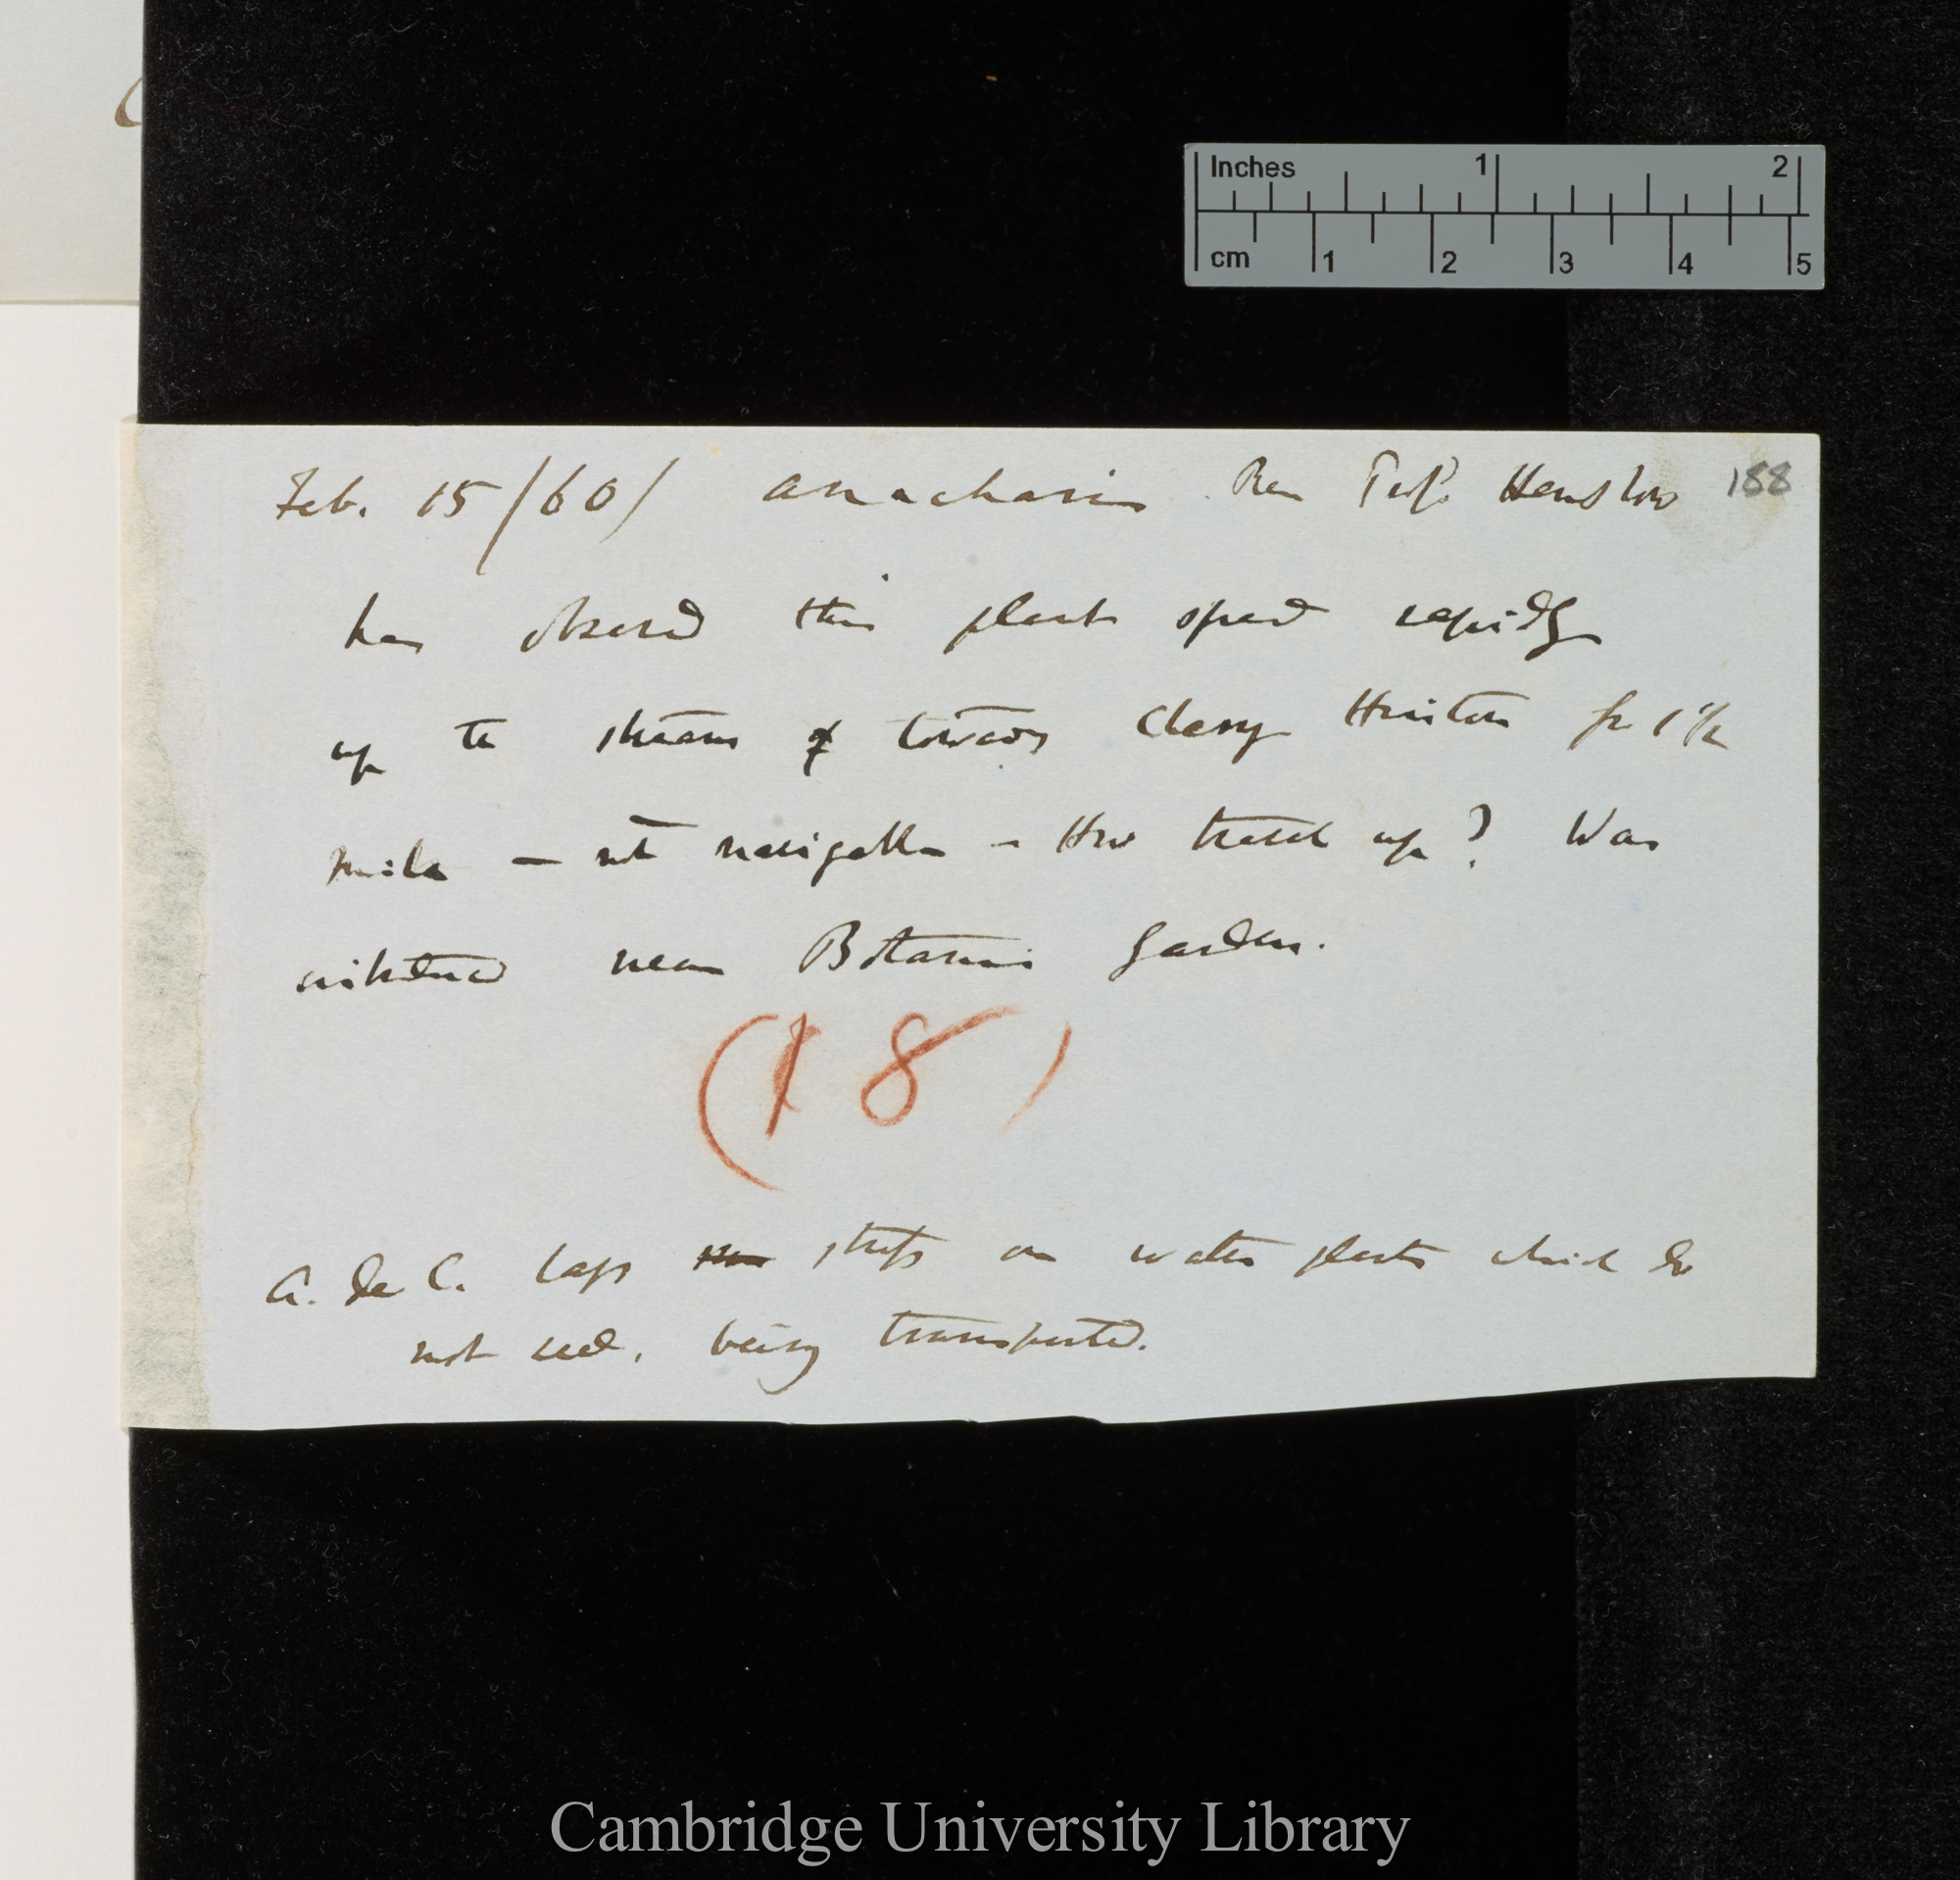 Inches 1 2
cm 1 2 3 4 5
Feb. 15/60/ Anacharis Prof. Henslow 188
has observed this plant spread rapidly
up the stream towards Cherry Hinton for 1 1/2
mile — not navigable — How travel up? Was
introduced near Botanic Garden.
(18)
A. De C. lays stress on water plants which do
not seed, being transported.
Cambridge University Library